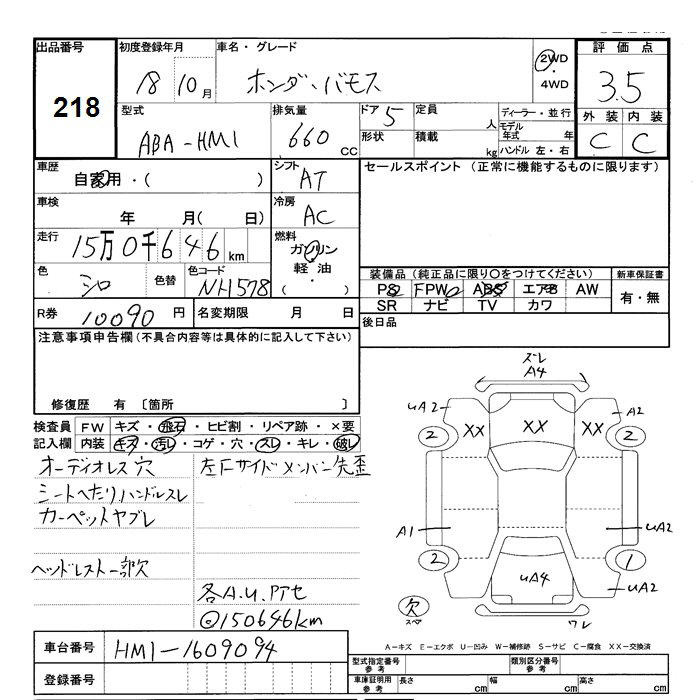 出品番号
218
初度登録年月
18 10月
車名・グレード
ホンダ・バモス
2WD
4WD
評価点
3.5
外装 内装
C C
型式
ABA-HM1
排気量
660 CC
ドア 5
形状
定員 人
積載 kg
ディーラー・並行
モデル年式 年
ハンドル 左・右
車歴
自家用・( )
シフト
AT
セールスポイント (正常に機能するものに限ります)
車検
年 月( 日)
冷房
AC
走行
15万0千646km
燃料
ガソリン
軽油
( )
色
シロ
色替
色コード
NH578
装備品 (純正品に限り○をつけてください)
PS FPW ABS エアB AW
SR ナビ TV カワ
新車保証書
有・無
R券 10090 円
名変期限 月 日
後日品
注意事項申告欄(不具合内容等は具体的に記入して下さい)
修復歴 有 〔箇所 〕
検査員記入欄
FW キズ・飛石・ヒビ割・リペア跡・×要
内装 キズ・汚レ・コゲ・穴・スレ・キレ・破レ
オーディオレス穴
シートへたり,ハンドルスレ
カーペットヤブレ
ヘッドレスト一部欠
左Fサイドメンバー先歪
各A.U.アアセ
◎150646km
ズレ
A4
UA2
A2
XX
XX
XX
2
2
A1
UA2
2
1
UA4
UA2
欠
スペア
ワレ
A-キズ E-エクボ U-凹み W-補修跡 S-サビ C-腐食 XX-交換済
車台番号
HM1-1609094
登録番号
型式指定番号 参考
類別区分番号 参考
車庫証明用 参考
長さ cm
幅 cm
高さ cm